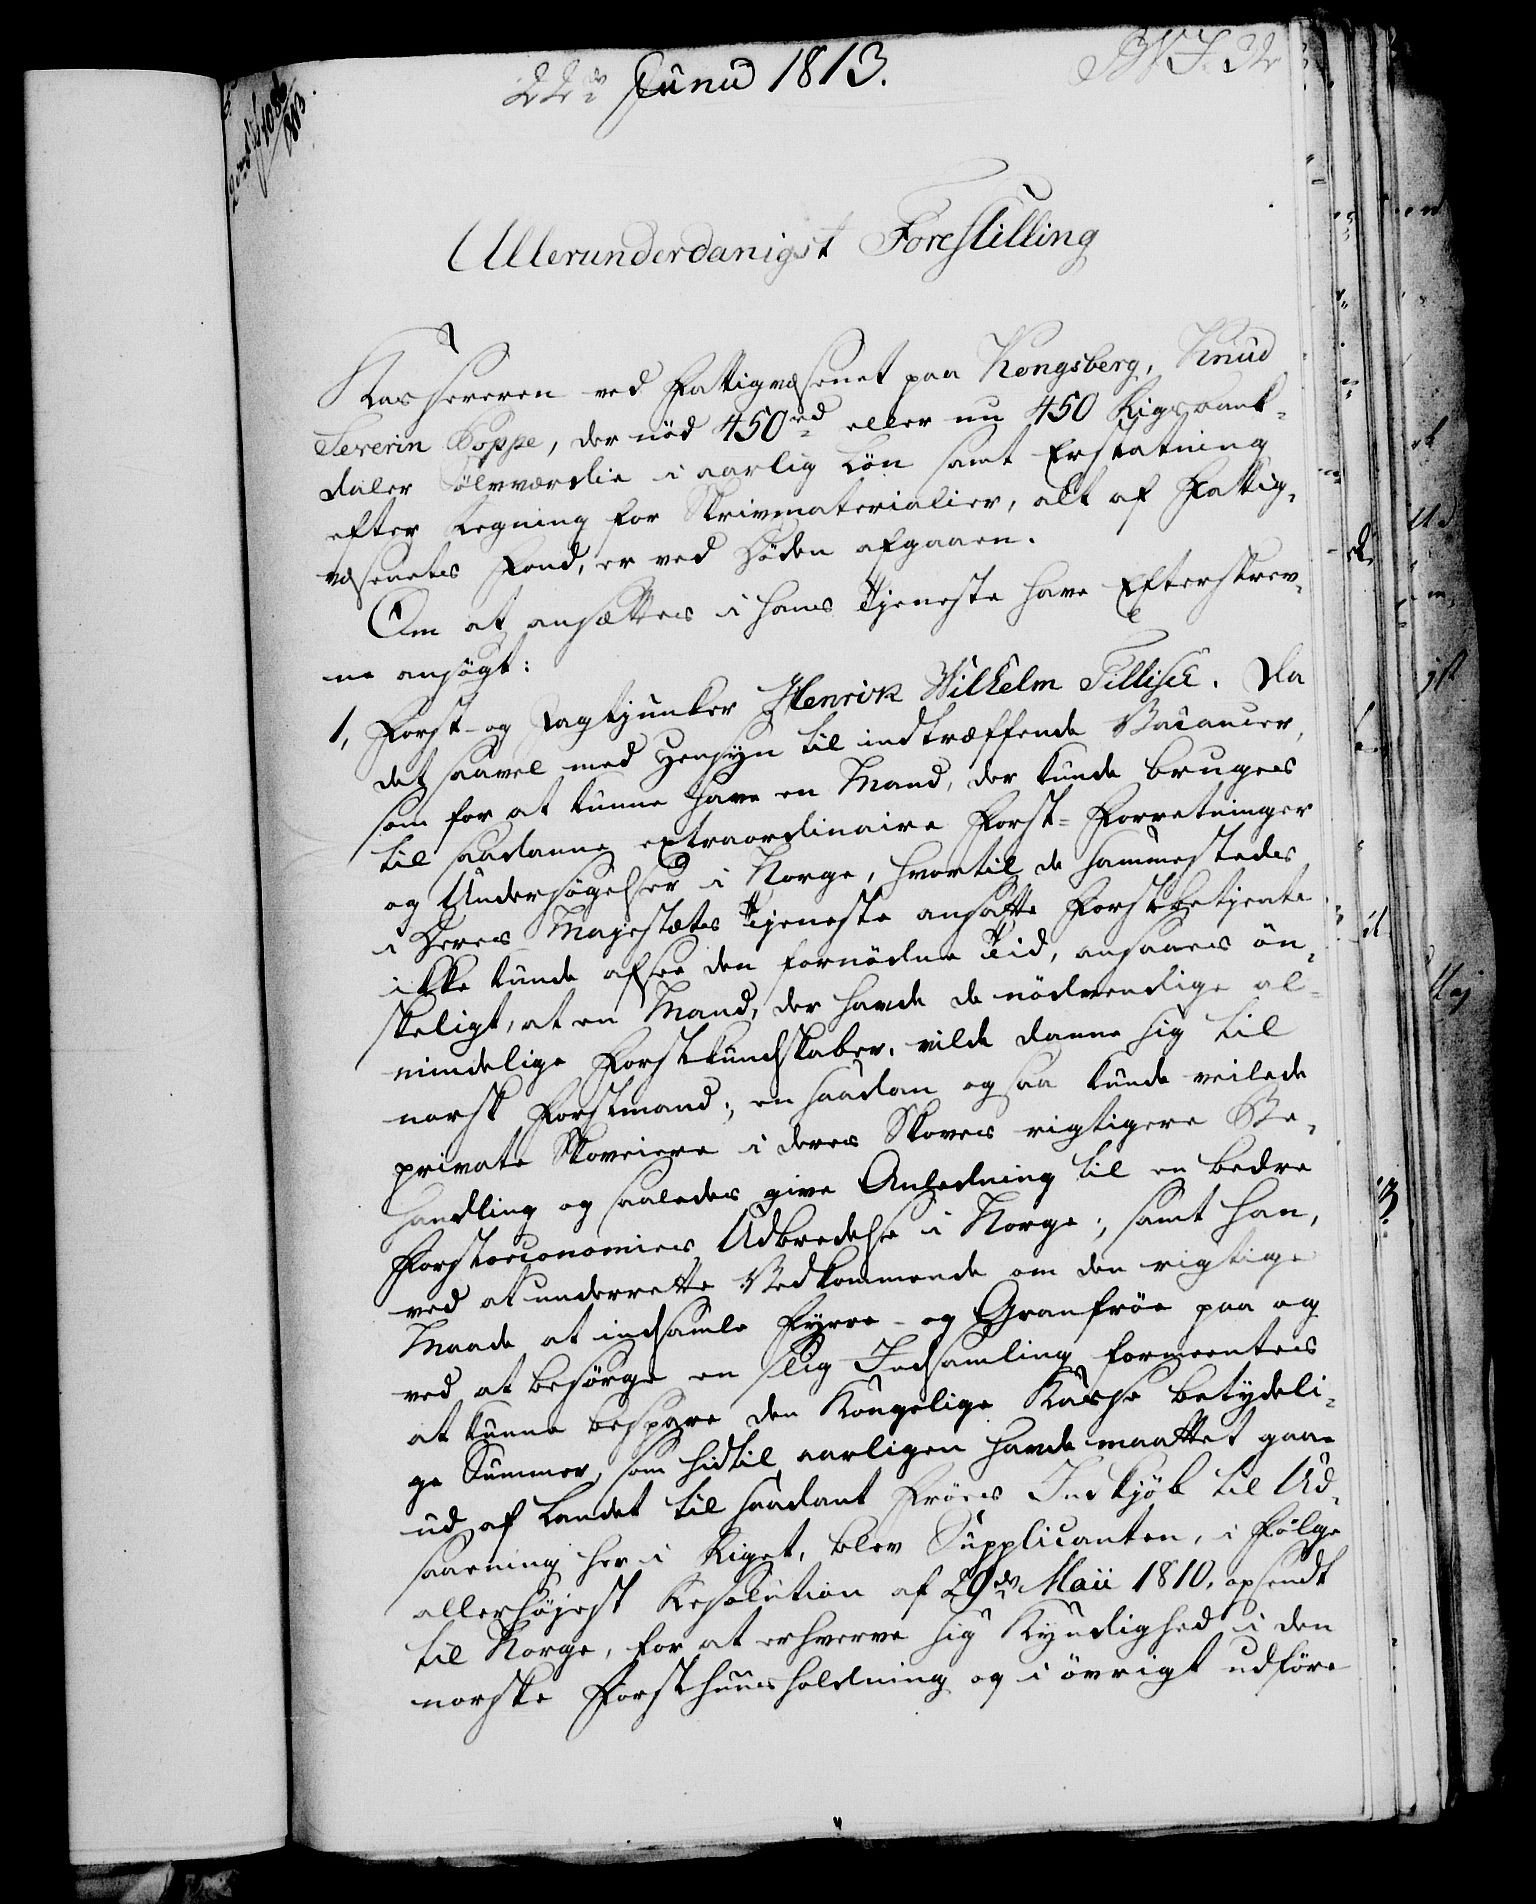 22de Junii 1813.
Allerunderdanigst Forestilling
Kassereren ved Fattigvæsenet paa Kongsberg, Knud
Severin Hoppe, der nød 450 rd eller nu 450 Rigsbank-
daler Sølvværdie i aarlig Løn samt Erstatning
efter Regning for Skrivmaterialier, alt af Fattig-
væsenets Fond, er ved Døden afgaaen.
Om at ansættes i hans Tjeneste have Efterskrev-
ne ansøgt:
1, Forst- og Jagtjunker Henrik Wilhelm Tillisch. Da
det saavel med Hensyn til indtræffende Vacancer,
som for at kunne have en Mand, der kunde bruges
til saadanne extraordinaire Forst-Forretninger
og Undersøgelser i Norge, hvortil de sammesteds
i Deres Majestæts Tjeneste ansatte Forstbetjente
ikke kunde afsee den fornødne Tid, ansaaes øn-
skeligt, at en Mand, der havde de nødvendige al-
mindelige Forstkundskaber, vilde danne sig til
norsk Forstmand; en saadan ogsaa kunde veilede
private Skoveiere i deres Skoves rigtigere Be-
handling og saaledes give Anledning til en bedre
Forstoeconomies Udbredelse i Norge; samt han,
ved at underrette Vedkommende om den rigtige
Maade at indsamle Fyrre- og Granfrøe paa og
ved at besørge en slig Indsamling formeentes
at kunne bespare den Kongelige Kasse betydeli-
ge Summer, som hidtil aarligen havde maattet gaae
ud af Landet til saadant Frøes Indkjøb til Ud-
saaening her i Riget, blev Supplicanten, i Følge
allerhøjest Resolution af 29de Maii 1810, opsendt
til Norge, for at erhverve sig Kyndighed i den
norske Forsthuusholdning og i øvrigt udføre